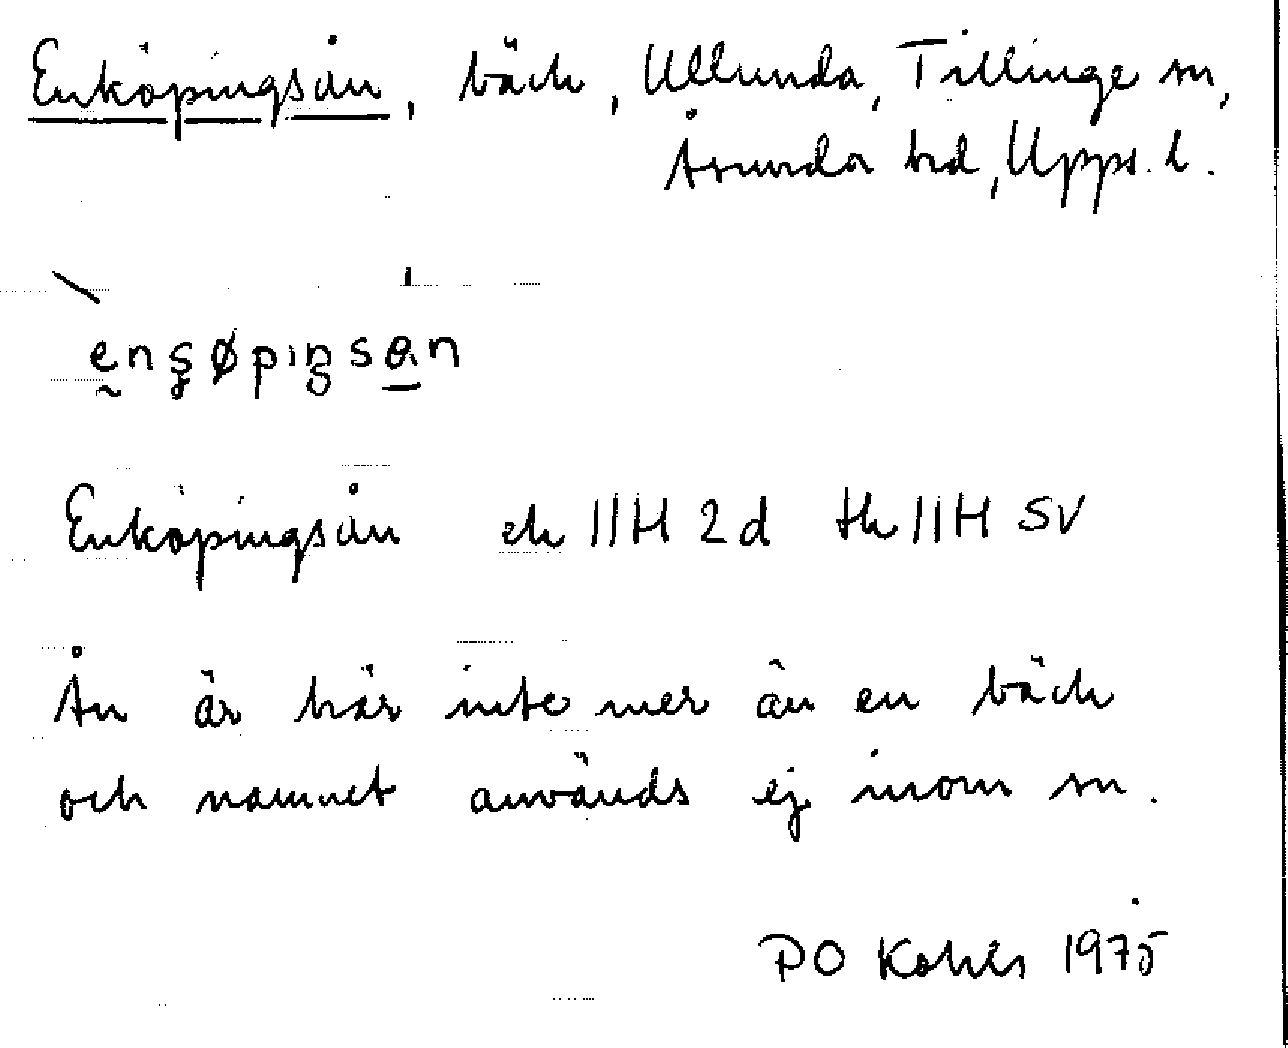 Enköpingsån, bäck, Ullunda, Tillinge sn,
Åsunda hd, Upps. l.
Enköpingsån ek 11H 2d tk 11H SV
Ån är här inte mer än en bäck
och namnet används ej inom sn.
PO 1975